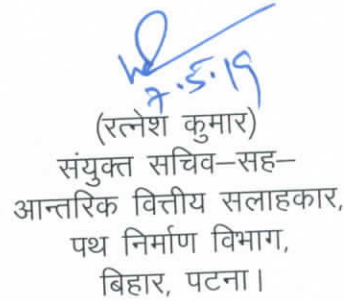 7.5.19
(रत्नेश कुमार)
संयुक्त सचिव–सह–
आन्तरिक वित्तीय सलाहकार,
पथ निर्माण विभाग,
बिहार, पटना।